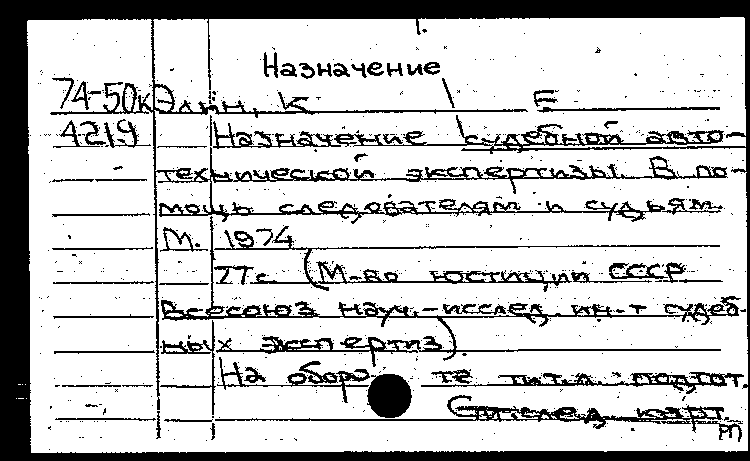 1.
Назначение
74-50к Элин, К Е
4219 Назначение судебной авто-
технической экспертизы. В по-
мощь следователям и судьям.
М. 1974
77с. (М-во юстиции СССР
Всесоюз науч.-исслед. ин-т судеб-
ных экспертиз).
На оборо те тит. л. : подгот.
След. карт.
РП